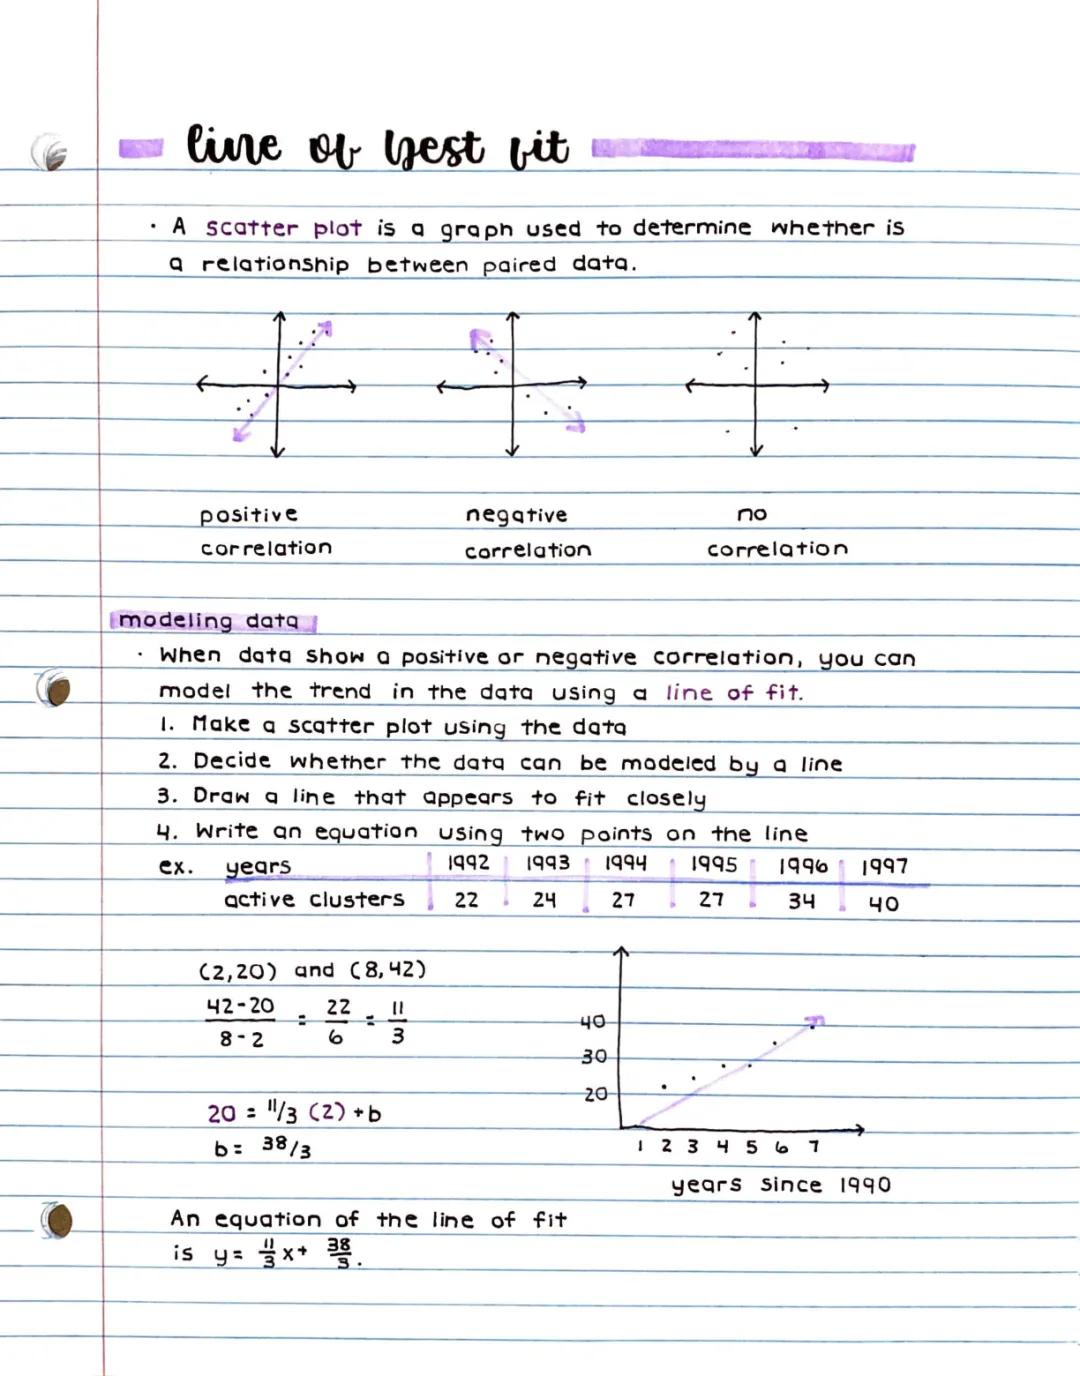 line of best fit
· A scatter plot is a graph used to determine whether is
a relationship between paired data.
positive negative no
correlation correlation correlation
modeling data
· When data show a positive or negative correlation, you can
model the trend in the data using a line of fit.
1. Make a scatter plot using the data
2. Decide whether the data can be modeled by a line
3. Draw a line that appears to fit closely
4. Write an equation using two points on the line
ex. years 1992 1993 1994 1995 1996 1997
active clusters 22 24 27 27 34 40
(2,20) and (8,42)
42-20 / 8-2 = 22/6 = 11/3
20 = 11/3 (2) + b
b = 38/3
40
30
20
1 2 3 4 5 6 7
years since 1990
An equation of the line of fit
is y = 11/3 x + 38/3.